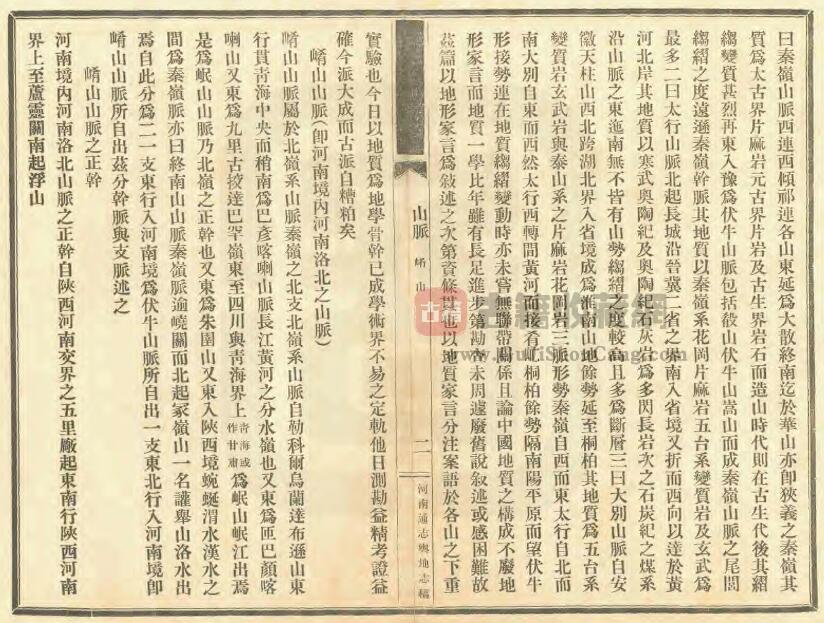 曰秦嶺山脈西連西傾祁連各山東延爲大散終南迄於華山亦卽狹義之秦嶺其
質爲太古界片麻岩元古界片岩及古生界岩石而造山時代則在古生代後其縐
縐變質甚烈再東入豫爲伏牛山脈包括殽山伏牛山嵩山而成秦嶺山脈之尾閭
縐縐之度遠遜秦嶺幹脈其地質以秦嶺系花岡片麻岩五台系變質岩及玄武爲
最多二曰太行山脈北起長城沿晉冀二省之界南入省境又折而西向以達於黃
河北岸其地質以寒武奧陶紀及奧陶紀石灰岩爲多閃長岩次之石炭紀之煤系
沿山脈之東迤南無不皆有山勢縐縐之度較高且多爲斷層三曰大別山脈自安
徽天柱山西北跨湖北界入省境成爲淮南山地餘勢延至桐柏其地質爲五台系
變質岩玄武岩與泰山系之片麻岩花岡岩三脈形勢秦嶺自西而東太行自北而
南大別自東而西然太行西轉間黃河而接着崤桐柏餘勢隔南陽平原而望伏牛
形接勢連在地質縐縐變動時亦未嘗無聯帶關係且論中國地質之構成不廢地
形家言而地質一學比年雖有長足進步第勘查未周遽廢舊說敘述或感困難故
茲篇以地形家言爲敘述之次第資條貫也以地質家言分注案語於各山之下重
山脈 崤山
二一
河南通志輿地志稿
實驗也今日以地質爲地學骨幹已成學術界不易之定軌他日測勘益精考證益
確今派大成而古派自糟粕矣
崤山山脈(卽河南境內河南洛北之山脈)
崤山山脈屬於北嶺系山脈秦嶺之北支北嶺系山脈自勒科爾烏蘭達布遜山東
行貫靑海中央而稍南爲巴彥喀喇山脈長江黃河之分水嶺也又東爲匝巴顏喀
喇山又東爲九里古挍達巴罕嶺東至四川與靑海界上靑海或作甘肅爲岷山岷江出焉
是爲岷山山脈乃北嶺之正幹也又東爲朱圉山又東入陝西境蜿蜒渭水漢水之
間爲秦嶺脈亦曰終南山山脈秦嶺脈逾嶢關而北起冢嶺山一名讙舉山洛水出
焉自此分爲二一支東行入河南境爲伏牛山脈所自出一支東北行入河南境卽
崤山山脈所自出茲分幹脈與支脈述之
崤山山脈之正幹
河南境內河南洛北山脈之正幹自陝西河南交界之五里廠起東南行陝西河南
界上至蘆靈關南起浮山
古籍收藏網
www.GuJiShouCang.com